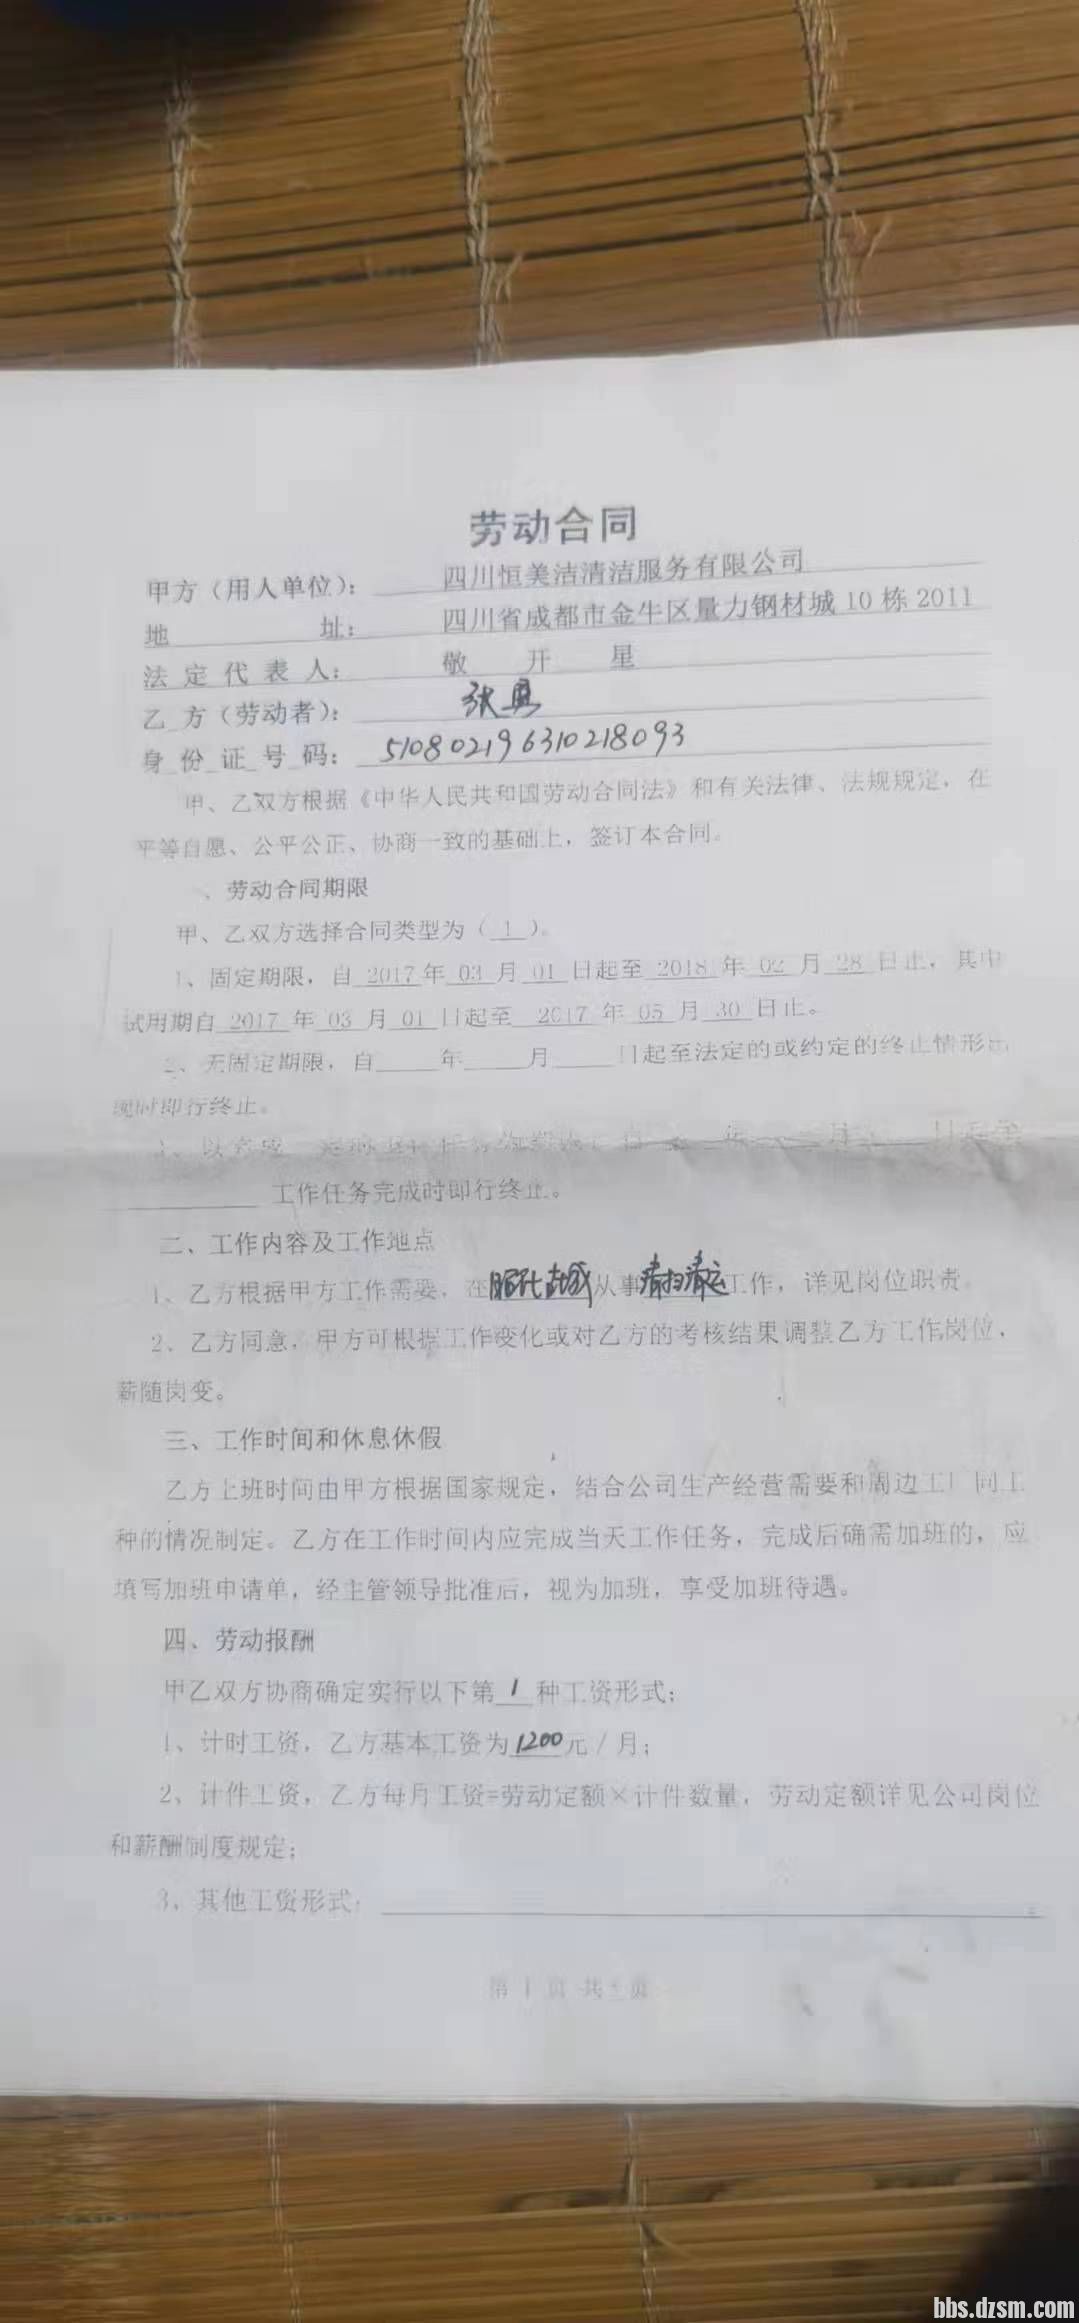 劳动合同
甲方（用人单位）： 四川恒美洁清洁服务有限公司
地 址： 四川省成都市金牛区量力钢材城 10 栋 2011
法 定 代 表 人： 敬 开 星
乙 方（劳动者）： 张
身 份 证 号 码： 510802196310218093
甲、乙双方根据《中华人民共和国劳动合同法》和有关法律、法规规定，在
平等自愿、公平公正、协商一致的基础上，签订本合同。
、劳动合同期限
甲、乙双方选择合同类型为（ 1 ）。
1、固定期限，自 2017 年 03 月 01 日起至 2018 年 02 月 28 日止，其中
试用期自 2017 年 03 月 01 日起至 2017 年 05 月 30 日止。
2、无固定期限，自____年____月____日起至法定的或约定的终止情形出
现时即行终止。
工作任务完成时即行终止。
二、工作内容及工作地点
1、乙方根据甲方工作需要，在 昭化古城 从事 清扫清运 工作，详见岗位职责。
2、乙方同意，甲方可根据工作变化或对乙方的考核结果调整乙方工作岗位，
薪随岗变。
三、工作时间和休息休假
乙方上班时间由甲方根据国家规定，结合公司生产经营需要和周边工厂同工
种的情况制定。乙方在工作时间内应完成当天工作任务，完成后确需加班的，应
填写加班申请单，经主管领导批准后，视为加班，享受加班待遇。
四、劳动报酬
甲乙双方协商确定实行以下第 1 种工资形式；
1、计时工资，乙方基本工资为 1200 元／月；
2、计件工资，乙方每月工资=劳动定额×计件数量，劳动定额详见公司岗位
和薪酬制度规定；
3、其他工资形式：
第 1 页 共 页
bbs.dzsm.com